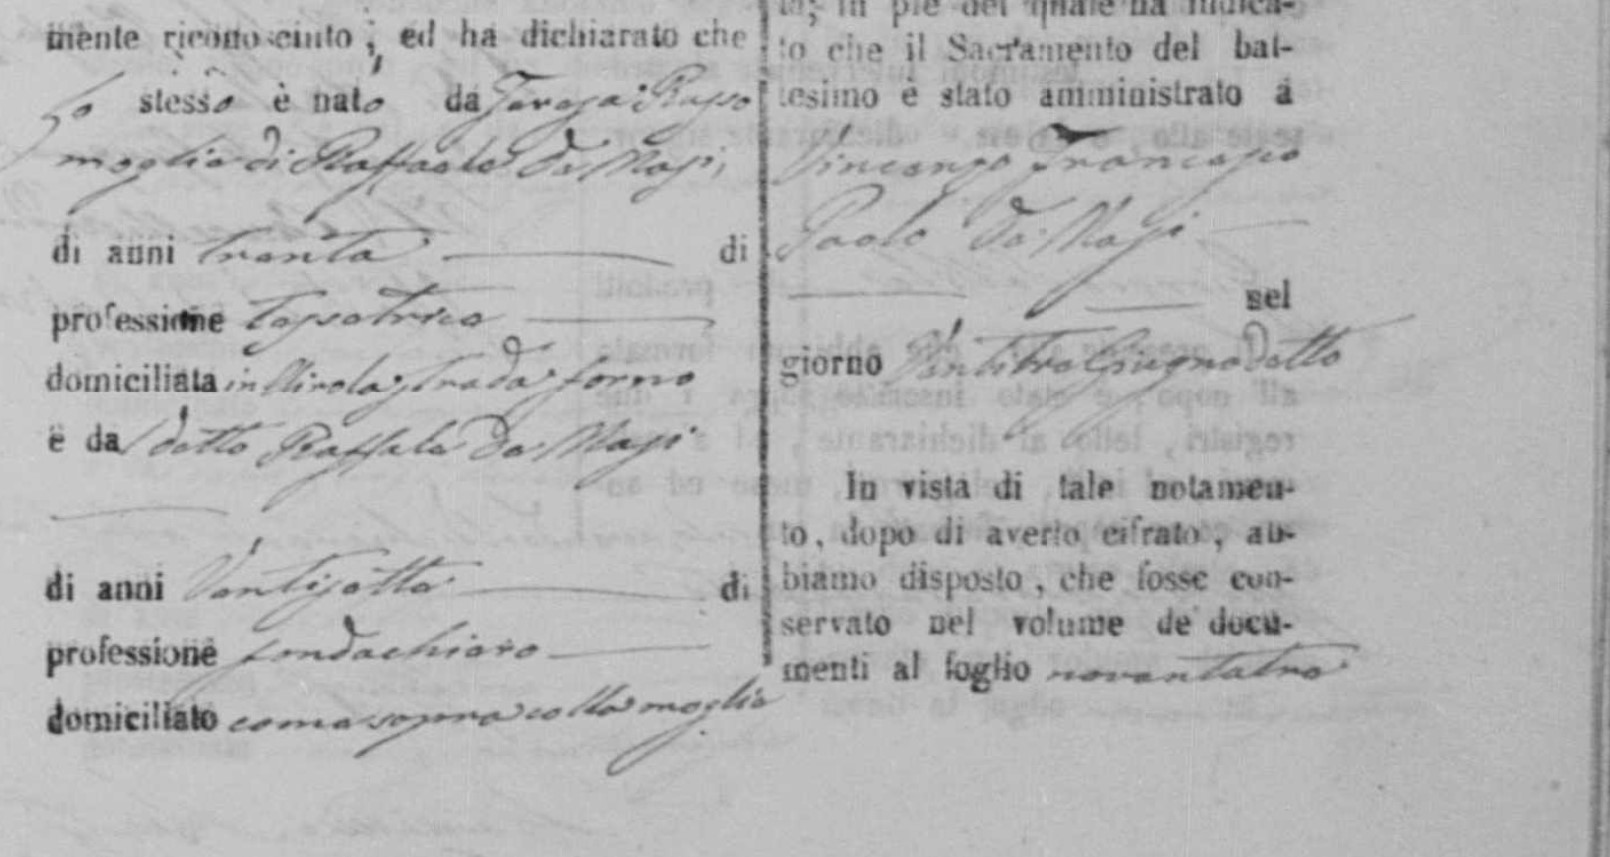 mente riconosciuto, ed ha dichiarato che
lo stesso è nato da Teresa Russo
moglie di Raffaele De Masi,
di anni trenta di
professione
domiciliata in Mirola strada forno
e da detto Raffaele De Masi
di anni Ventisette di
professione fondachiaro
domiciliato come sopra colla moglie
ta; in piè del quale ha indica-
to che il Sacramento del bat-
tesimo e stato amministrato a
Vincenzo Francesco
Paolo De Masi
nel
giorno Ventitre Giugno detto
In vista di tale notamen-
to, dopo di averlo cifrato, ab-
biamo disposto, che fosse con-
servato nel volume de' docu-
menti al foglio novantatre